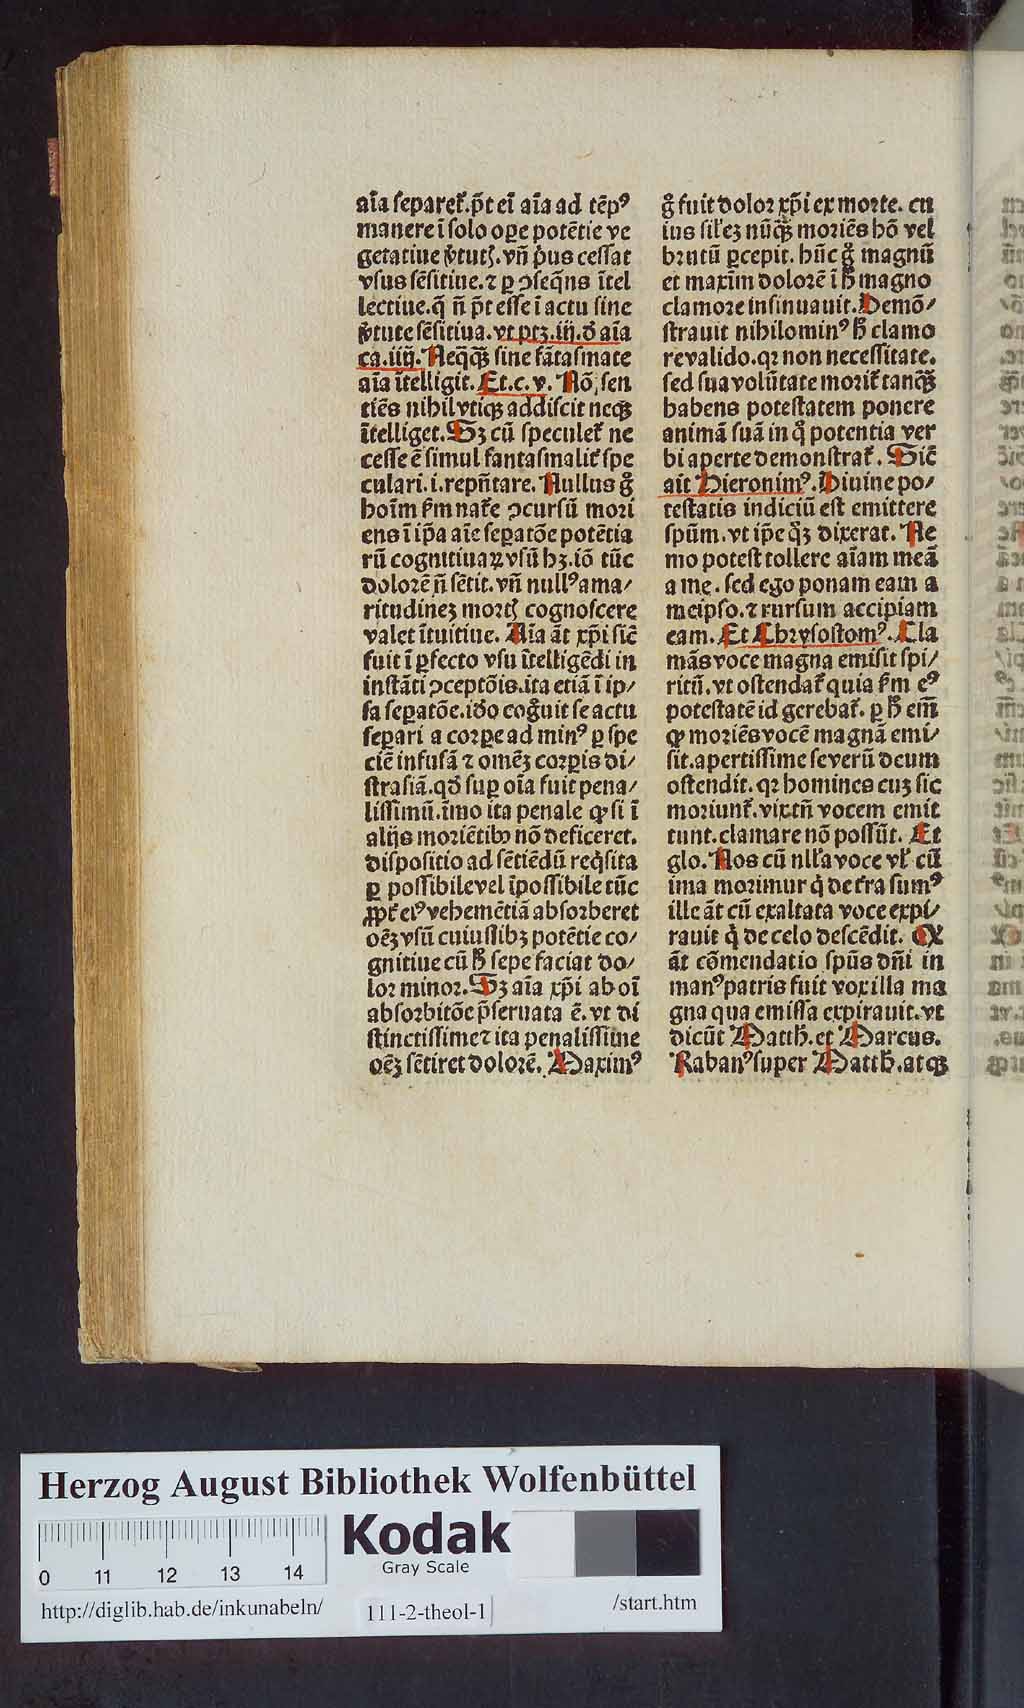 aīa separet᷑.p̄t eī aīa ad tēpꝰ
manere ī solo oꝑe potētie ve
getatiue v̾tutꝭ.vn̄ p̾us cessat
vsus sēsitiue.⁊ ꝑ ↄseq̄ns ītel
lectiue.q̄ n̄ p̄t esse ī actu sine
v̾tute sēsitiua.vt ptꝫ.iij.ð aīa
ca.iiij. Neq̄qꝫ sine fātasmate
aīa ītelligit. Et.c.v. Nō, sen
tiēs nihil vtiqꝫ addiscit neqꝫ
ītelliget. Sꝫ cū speculet᷑ ne
cesse ē simul fantasmalit᷑ spe
culari.i.repn̄tare. Nullus g̊
hoīm ẜm nat᷑e ↄcursū mori
ens ī ip̄a aīe seꝑatōe potētia
rū cognitiuaꝝ vsū hꝫ.iō tūc
dolorē n̄ sētit.vn̄ nullꝰ ama/
ritudineꝫ mortꝭ cognoscere
valet ītuitiue. Aīa āt xp̄i sic̄
fuit ī ꝑfecto vsu ītelligēdi in
instāti ↄceptōis.ita etiā ī ip/
sa seꝑatōe.iðo cog̊uit se actu
seꝑari a corꝑe ad minꝰ ꝑ spe
ciē infusā ⁊ omēꝫ corꝑis di/
strasiā.qð suꝑ oīa fuit pena/
lissimū.īmo ita penale ꝙ si ī
alijs moriētibꝰ nō deficeret.
dispositio ad sētiēdū req̇sita
ꝑ possibile vel īpossibile tūc
ꝓpt᷑ eiꝰ vehemētiā absorberet
oēꝫ vsū cuiuslibꝫ potētie co/
gnitiue cū ħ sepe faciat do/
lor minor. Sꝫ aīa xp̄i ab oī
absorbitōe p̄seruata ē.vt di
stinctissime ⁊ ita penalissime
oēꝫ sētiret dolorē. Maximꝰ
g̊ fuit dolor xp̄i ex morte. cu
ius sil᷑eꝫ nūqꝫ moriēs hō vel
brutū ꝑcepit. hūc g̊ magnū
et maxim dolorē ī ħ magno
clamore insinuauit. Demō/
strauit nihilominꝰ ħ clamo
re valido.qꝛ non necessitate.
sed sua volūtate morit᷑ tanqꝫ
habens potestatem ponere
animā suā in q̊ potentia ver
bi aperte demonstrat᷑. Sic̄
ait Hieronimꝰ. Diuine po/
testatis indiciū est emittere
spūm.vt ip̄e q̊ꝫ dixerat. Ne
mo potest tollere aīam meā
a me. sed ego ponam eam a
meipso.⁊ rursum accipiam
eam. Et Chrysostomꝰ. Cla
māsvoce magna emisit spi/
ritū.vt ostendat᷑ quia ẜm eꝰ
potestatē id gerebat᷑. ꝑ ħ em̄
ꝙ moriēs vocē magnā emi/
sit.apertissime se verū deum
ostendit.qꝛ homines cuꝫ sic
moriunt᷑.vix tn̄ vocem emit
tunt.clamare nō possūt. Et
glo. Nos cū nll᷑a voce vl᷑ cū
ima morimur q̇ de tr̄a sumꝰ
ille āt cū exaltata voce expi/
rauit q̇ de celo descēdit. Q
āt cōmendatio spūs dn̄i in
manꝰ patris fuit vox illa ma
gna qua emissa expirauit.vt
dicūt Matth̄.et Marcus.
Rabanꝰ super Matth̄.atqꝫ
Herzog August Bibliothek Wolfenbüttel
0 11 12 13 14
Kodak
Gray Scale
http://diglib.hab.de/inkunabeln/ 111-2-theol-1 /start.htm